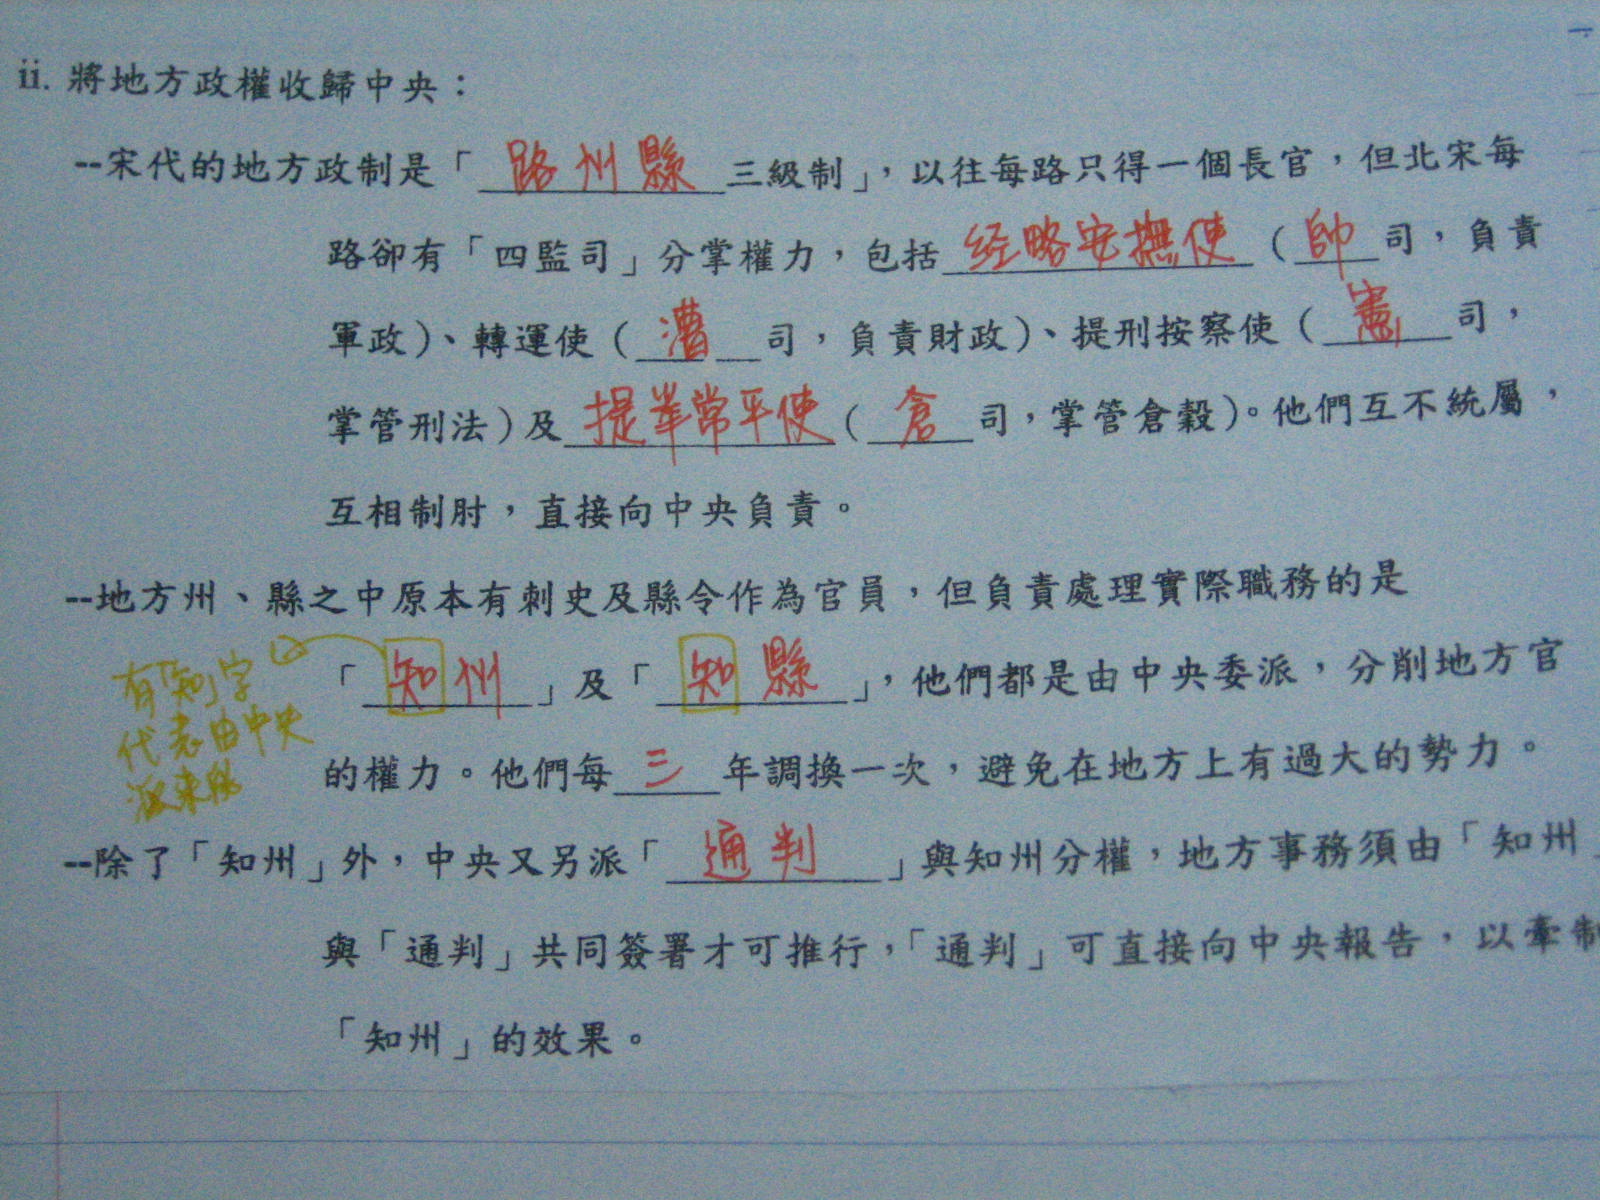 ii. 將地方政權收歸中央：
--宋代的地方政制是「路州縣三級制」，以往每路只得一個長官，但北宋每
路卻有「四監司」分掌權力，包括经略安撫使（帥司，負責
軍政）、轉運使（漕司，負責財政）、提刑按察使（憲司，
掌管刑法）及提舉常平使（倉司，掌管倉穀）。他們互不統屬，
互相制肘，直接向中央負責。
--地方州、縣之中原本有刺史及縣令作為官員，但負責處理實際職務的是
「知州」及「知縣」，他們都是由中央委派，分削地方官
的權力。他們每三年調換一次，避免在地方上有過大的勢力。
有「知」字
代表由中央
派來
--除了「知州」外，中央又另派「通判」與知州分權，地方事務須由「知州」
與「通判」共同簽署才可推行，「通判」可直接向中央報告，以牽制
「知州」的效果。